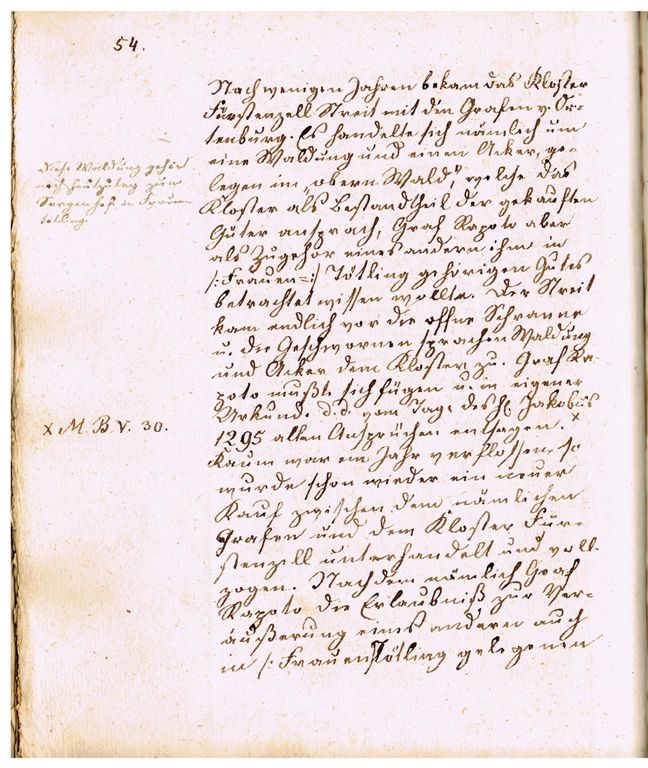 54.
Nach wenigen Jahren bekam das Kloster
Fürstenzell Streit mit den Grafen v. Or-
tenburg. Es handelte sich nämlich um
eine Waldung und einen Acker, ge-
legen im „obern Wald“, welche das
Kloster als Bestandtheil der gekauften
Güter ansprach, Graf Rapoto aber
als Zugehör eines andern ihm in
/: Frauen=:/ Tötling gehörigen Gutes
betrachtet wissen wollte. Der Streit
kam endlich vor die offne Schranne
u. die Geschwornen sprachen Waldung
und Acker dem Kloster zu. Graf Ra-
poto mußte sich fügen u. in eigener
Urkunde d.d. vom Tage des hl. Jakobus
1295 allen Ansprüchen entsagen. x
Kaum war ein Jahr verflossen, so
wurde schon wieder ein neuer
Kauf zwischen dem nämlichen
Grafen und dem Kloster Für-
stenzell unterhandelt und voll-
zogen. Nachdem nämlich Graf
Rapoto die Erlaubniß zur Ver-
äußerung eines andern auch
in /: Frauen Tötling gelegenen
Diese Waldung gehört
noch heutzutag zum
in Frauen
tötling.
x M. B. V. 30.